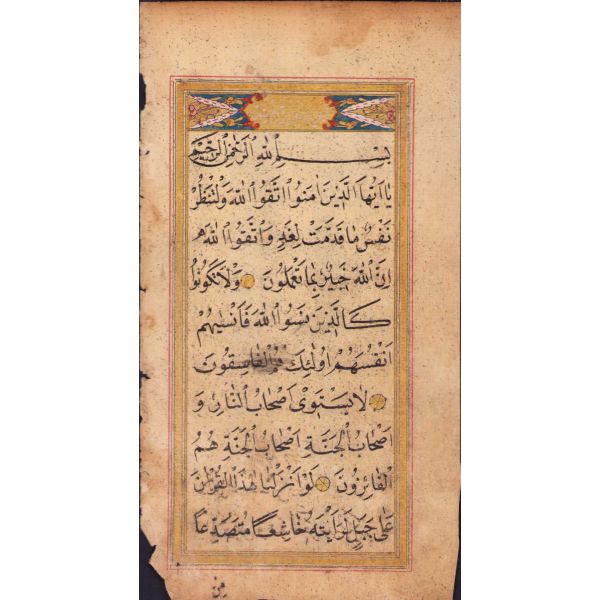 بِسْمِ اللّٰهِ الرَّحْمٰنِ الرَّحِيْمِ
يَا اَيُّهَا الَّذِيْنَ اٰمَنُوا اتَّقُوا اللّٰهَ وَلْتَنْظُرْ
نَفْسٌ مَا قَدَّمَتْ لِغَدٍ وَاتَّقُوا اللّٰهَ
اِنَّ اللّٰهَ خَبِيْرٌ بِمَا تَعْمَلُوْنَ وَلَا تَكُوْنُوْا
كَالَّذِيْنَ نَسُوا اللّٰهَ فَاَنْسٰيهُمْ
اَنْفُسَهُمْ اُولٰئِكَ هُمُ الْفَاسِقُوْنَ
لَا يَسْتَوٖى اَصْحَابُ النَّارِ وَ
اَصْحَابُ الْجَنَّةِ اَصْحَابُ الْجَنَّةِ هُمُ
الْفَائِزُوْنَ لَوْ اَنْزَلْنَا هٰذَا الْقُرْاٰنَ
عَلٰى جَبَلٍ لَرَاَيْتَهُ خَاشِعًا مُتَصَدِّعًا
مِنْ